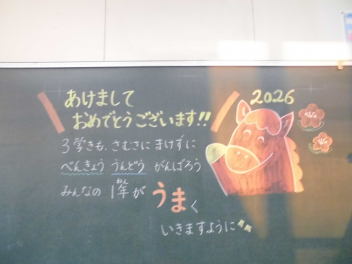 あけまして
おめでとうございます!!
2026
3学きも、さむさに まけずに
べんきょう うんどう がんばろう
みんなの 1年が
ねん
うまく
いきますように